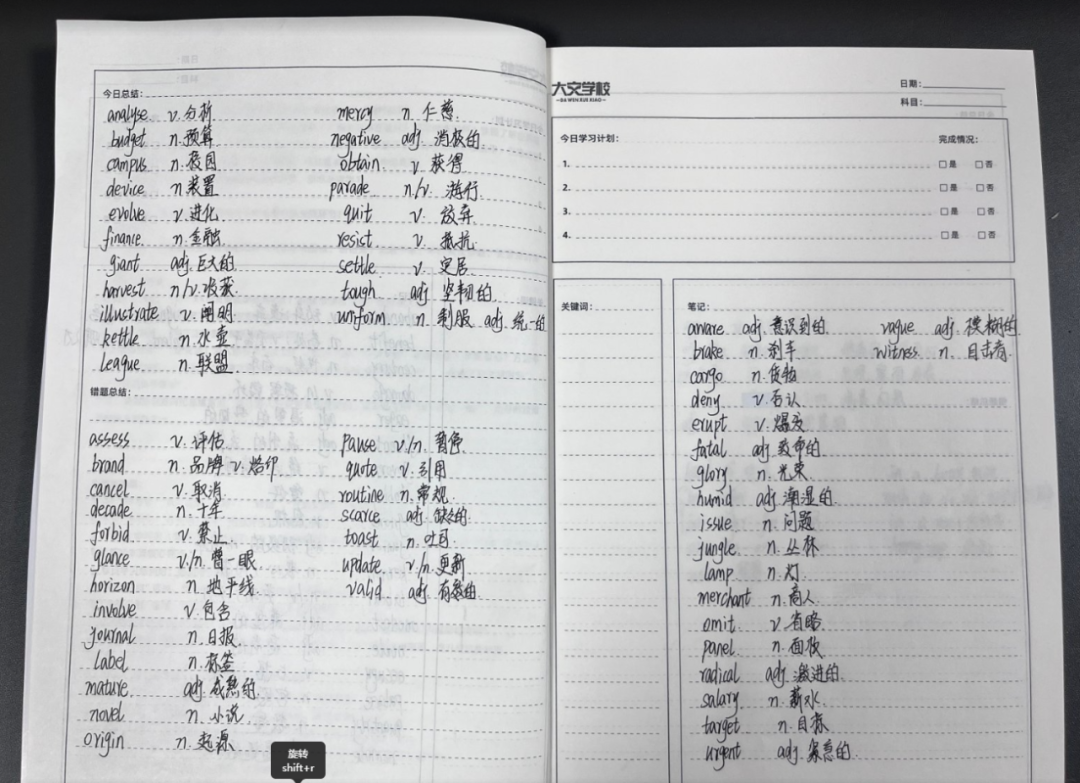 今日总结:
analyse v. 分析
budget n. 预算
campus n. 校园
device n. 装置
evolve v. 进化
finance. n. 金融
giant adj. 巨大的
harvest n./v. 收获
illustrate v. 阐明
kettle n. 水壶
league n. 联盟
mercy n. 仁慈
negative adj. 消极的
obtain v. 获得
parade n./v. 游行
quit v. 放弃
resist v. 抵抗
settle v. 定居
tough adj. 坚韧的
uniform n. 制服 adj. 统一的
错题总结:
assess v. 评估
brand n. 品牌 v. 烙印
cancel v. 取消
decade n. 十年
forbid v. 禁止
glance v./n. 瞥一眼
horizon n. 地平线
involve v. 包含
journal n. 日报
label n. 标签
mature adj. 成熟的
novel n. 小说
origin n. 起源
pause v./n.
quote v. 引用
routine n. 常规
scarce adj. 缺乏的
toast n. 吐司
update v./n. 更新
valid adj. 有效的
大文学校
DA WEN XUE XIAO
日期:
科目:
今日学习计划:
完成情况:
1.
是 否
2.
是 否
3.
是 否
4.
是 否
关键词:
笔记:
aware adj. 意识到的
brake n. 刹车
cargo n. 货物
deny v. 否认
erupt v. 爆发
fatal adj. 致命的
glory n. 光荣
humid adj. 潮湿的
issue n. 问题
jungle n. 丛林
lamp n. 灯
merchant n. 商人
omit v. 省略
panel n. 面板
radical adj. 激进的
salary n. 薪水
target n. 目标
urgent adj. 紧急的
vague adj. 模糊的
witness n. 目击者
旋转
shift+r